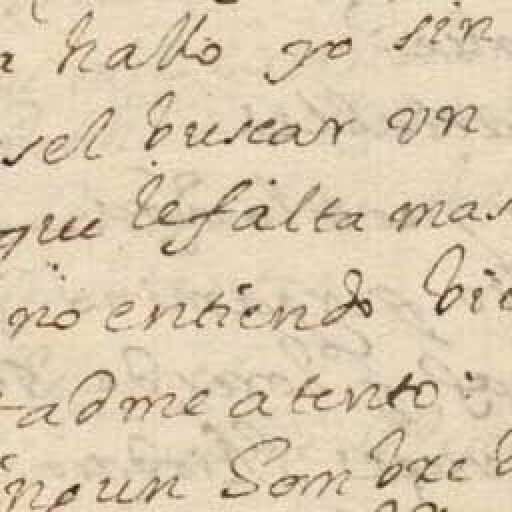 a hallo yo sin
sel buscar un
que le falta mas
no entiendo bie
tadme atento:
ingun Sombre b